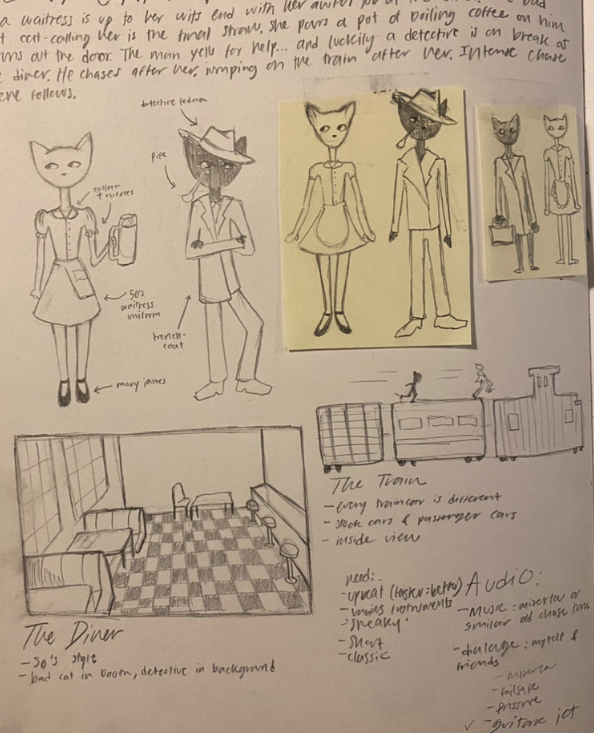 a waitress is up to her wits end with her awful job at the
cat-calling her is the final straw. she pours a pot of boiling coffee on him
out the door. The man yells for help... and luckily a detective is on break at
diner. He chases after her, jumping on the train after her. Intense chase
follows.
detective fedora
pipe
collar + ruffles
50's waitress uniform
trench-coat
mary janes
The Train
- every traincar is different
- stock cars & passenger cars
- inside view
need:
- upbeat (faster=better)
- various instruments
- sneaky
- short
- classic
Audio:
- Music: miserlou or
similar old chase tune
- dialogue: myself &
friends
- miserlou
- failsafe
- pressure
✓ - guitare jet
The Diner
- 50's style
- bad cat in booth, detective in background